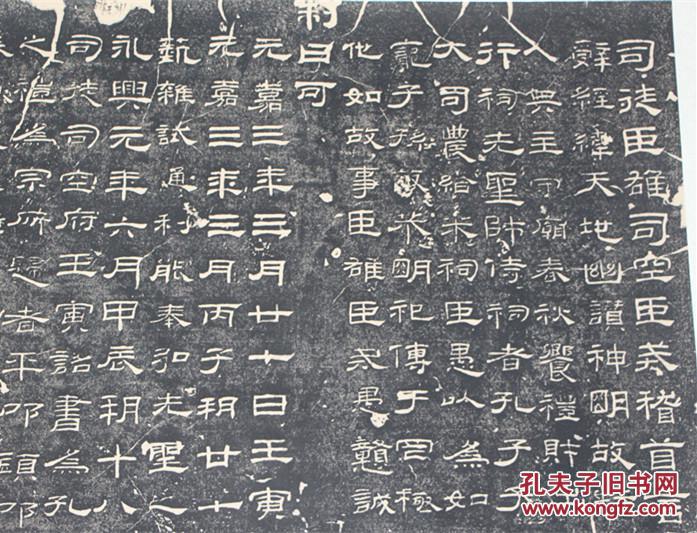 司徒臣雄司空臣戒稽首言
辭經緯天地幽讃神明故
人無主守廟春秋饗禮財
行祠先聖師侍祠者孔子子
大司農給米祠臣愚以為如
寵子孫敬恭明祀傳于罔極
他如故事臣雄臣戒愚戇誠
制曰可
元嘉三年三月廿七日壬寅
元嘉三年三月丙子朔廿七
藝雜試通利能奉弘先聖之
永興元年六月甲辰朔十八
司徒司空府壬寅詔書為孔
之禮為宗所歸者平叩頭叩
孔夫子旧书网
www.kongfz.com